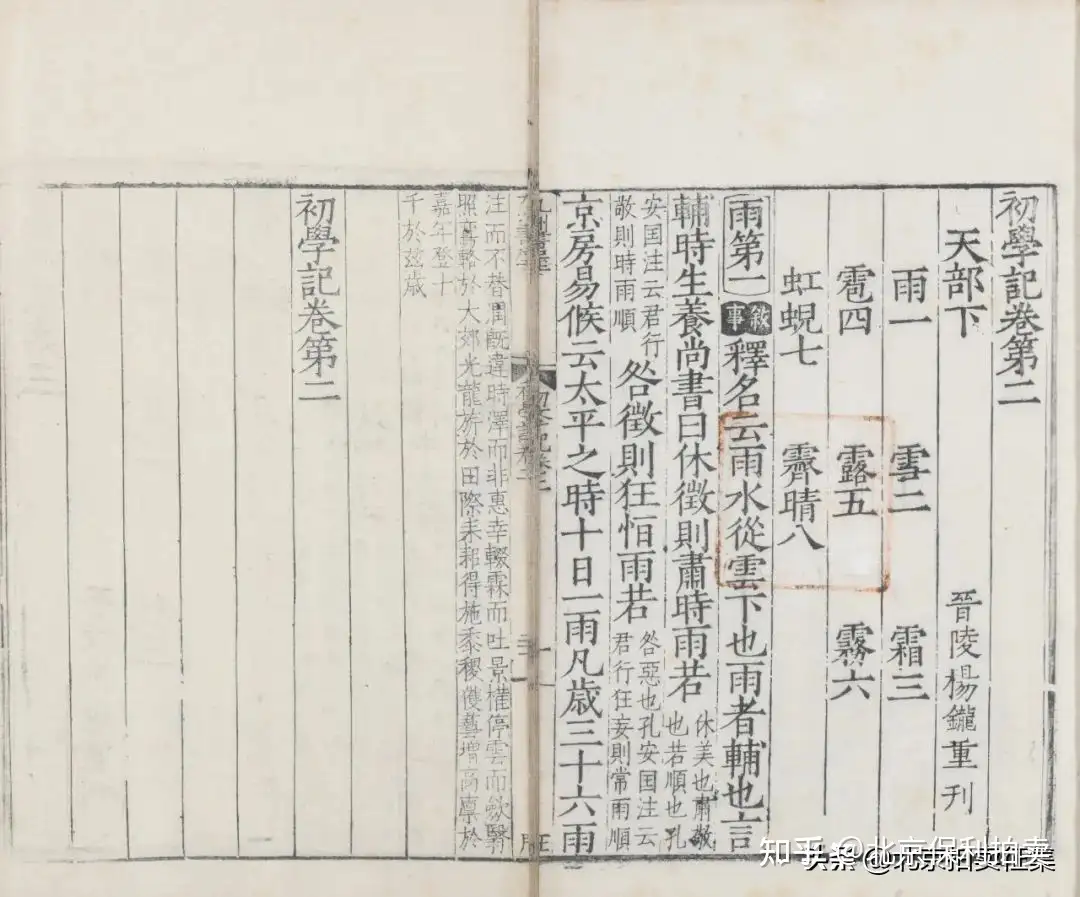 初學記卷第二
天部下　晉陵楊鑨重刊
雨一　雪二　霜三
雹四　露五　霧六
虹蜺七　霽晴八
雨第一　敘事　釋名云雨水從雲下也雨者輔也言
輔時生養尚書曰休徵則肅時雨若　休美也肅敬
也若順也孔
安国注云君行
敬則時雨順　咎徵則狂恒雨若　咎惡也孔安国注云
君行狂妄則常雨順
京房易候云太平之時十日一雨凡歳三十六雨
注而不替潤既違時澤而非惠幸輟霖而吐景權停雲而歛翳
照鸞輅於大郊光龍旂於田際耒耜得施黍稷獲藝增高廪於
嘉年登十
千於玆歳
初學記卷第二
知乎 @北京保利拍卖
头条